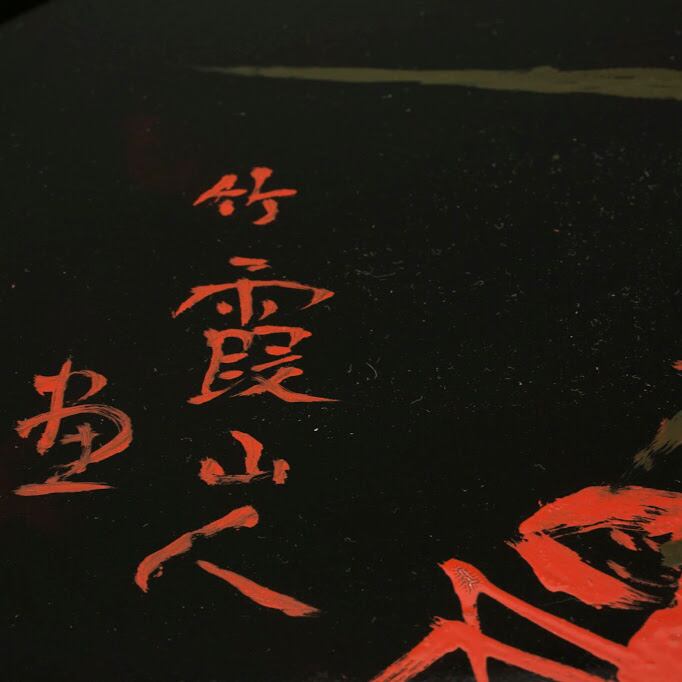 竹霞山人
画